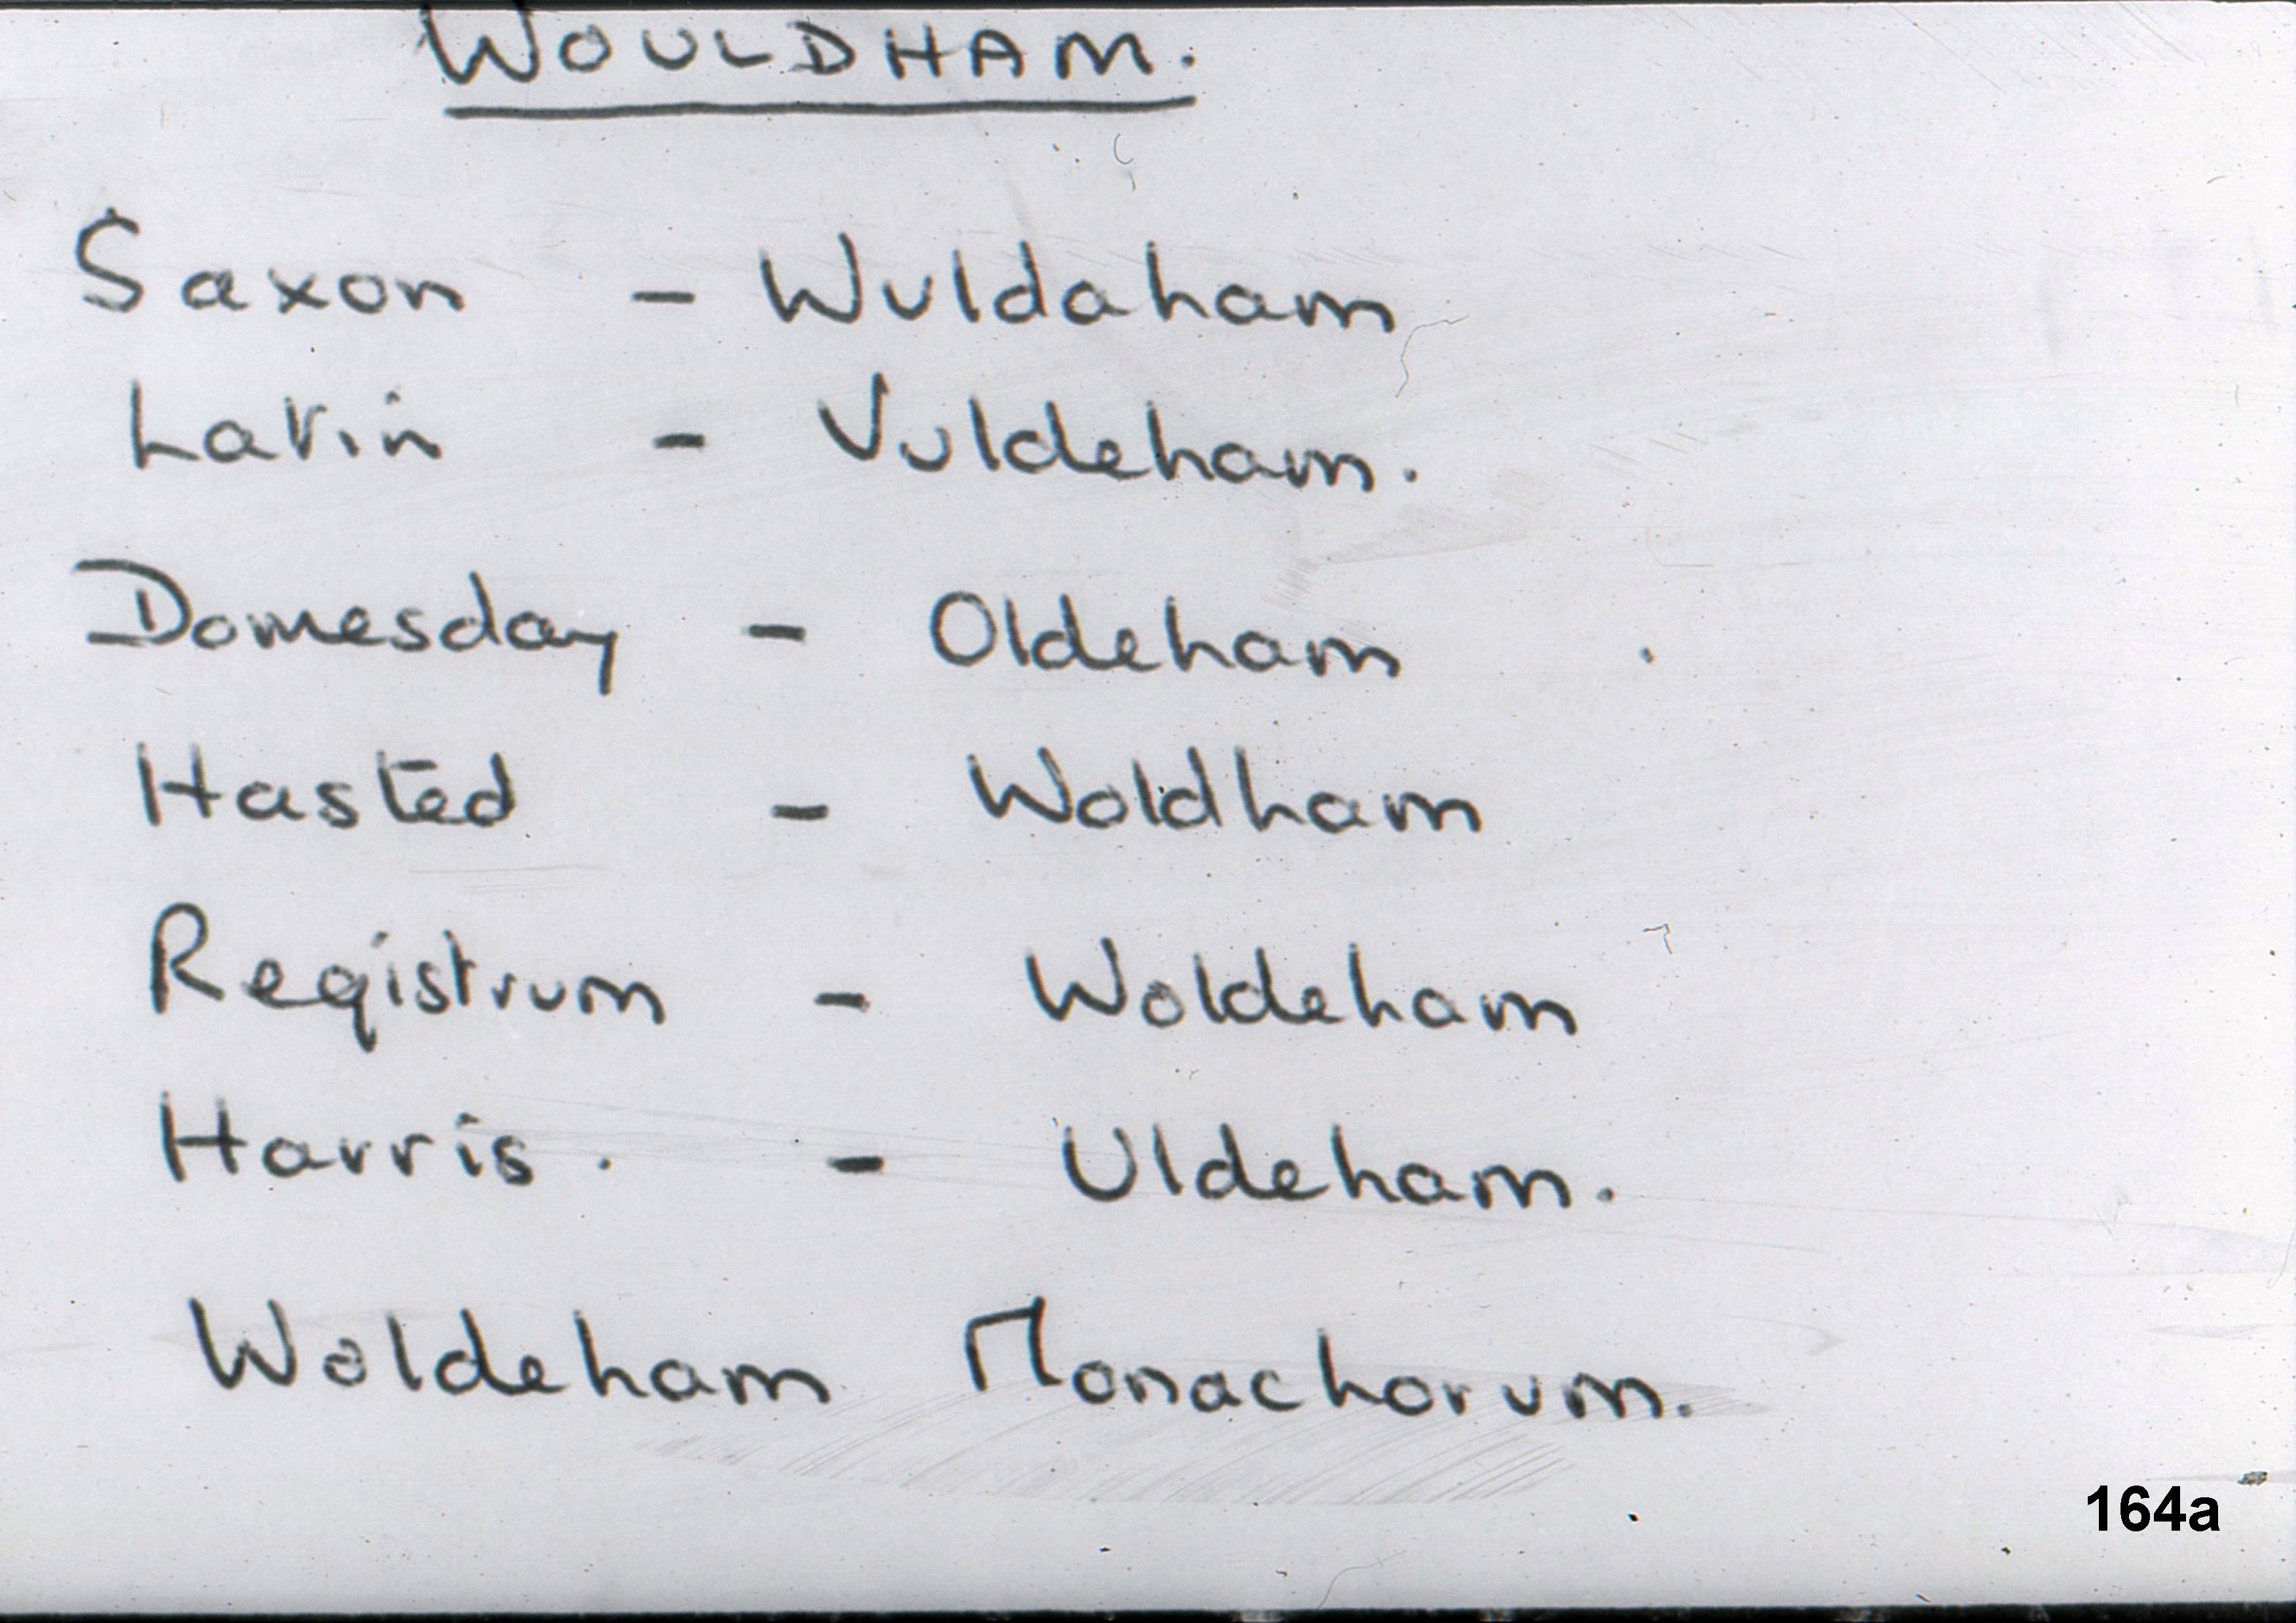 WOULDHAM.
Saxon - Wuldaham
Latin - Vuldeham.
Domesday - Oldeham
Hasted - Woldham
Registrum - Woldeham
Harris. - Uldeham.
Woldeham Monachorum.
164a